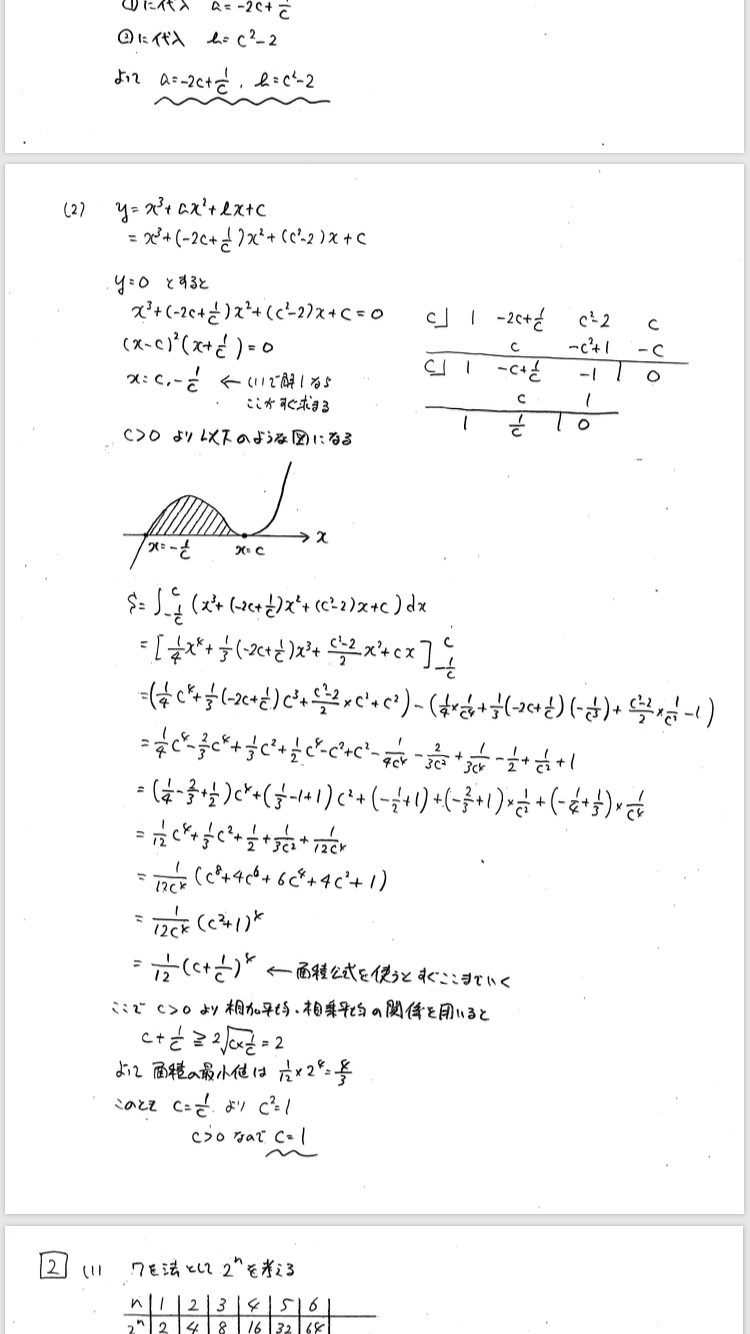 ①に代入 a=-2c+1/c
②に代入 b=c²-2
よって a=-2c+1/c, b=c²-2
(2) y=x³+ax²+bx+c
=x³+(-2c+1/c)x²+(c²-2)x+c
y=0 とすると
x³+(-2c+1/c)x²+(c²-2)x+c=0
(x-c)²(x+1/c)=0
x=c, -1/c ← (1)で解しなら
ここがすぐ求まる
c」 1 -2c+1/c c²-2 c
c -c²+1 -c
c」 1 -c+1/c -1 | 0
c 1
1 1/c | 0
c>0 より以下のような図になる
x=-1/c x=c x
S=∫_{-1/c}^{c} (x³+(-2c+1/c)x²+(c²-2)x+c)dx
=[1/4x⁴+1/3(-2c+1/c)x³+(c²-2)/2 x²+cx]_{-1/c}^{c}
=(1/4c⁴+1/3(-2c+1/c)c³+(c²-2)/2×c²+c²)-(1/4×1/c⁴+1/3(-2c+1/c)(-1/c³)+(c²-2)/2×1/c²-1)
=1/4c⁴-2/3c⁴+1/3c²+1/2c⁴-c²+c²-1/4c⁴-2/3c²+1/3c⁴-1/2+1/c²+1
=(1/4-2/3+1/2)c⁴+(1/3-1+1)c²+(-1/2+1)+(-2/3+1)×1/c²+(-1/4+1/3)×1/c⁴
=1/12c⁴+1/3c²+1/2+1/3c²+1/12c⁴
=1/12c⁴(c⁸+4c⁶+6c⁴+4c²+1)
=1/12c⁴(c²+1)⁴
=1/12(c+1/c)⁴ ← 面積公式を使うとすぐここまでいく
ここで c>0 より相加平均・相乗平均の関係を用いると
c+1/c≧2√(c×1/c)=2
よって面積の最小値は 1/12×2⁴=4/3
このとき c=1/c より c²=1
c>0 なので c=1
2 (1) 7を法として 2ⁿを考える
n 1 2 3 4 5 6
2ⁿ 2 4 8 16 32 64